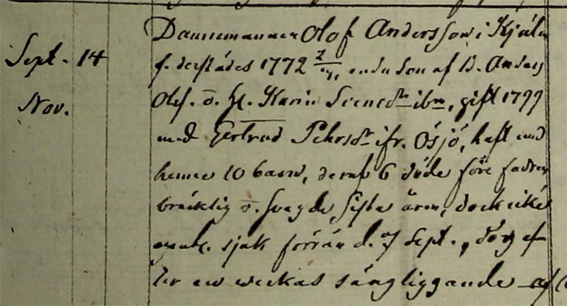 Dannemannen Olof Andersson i Kjäln
Sept. 14
f. derstädes 1772 2/4, ende son af B. Anders
Nov.
Olof. o. h. Karin Svensdr ibm, gift 1799
med Gertrud Pehrsdr ifr. Ösjö, haft med
henne 10 barn, deraf 6 döde före fadren
bräcklig o. svag de sista åren, dock icke
sjuk förrän d. 7 Sept., dog ef
ter en weckas sängliggande af